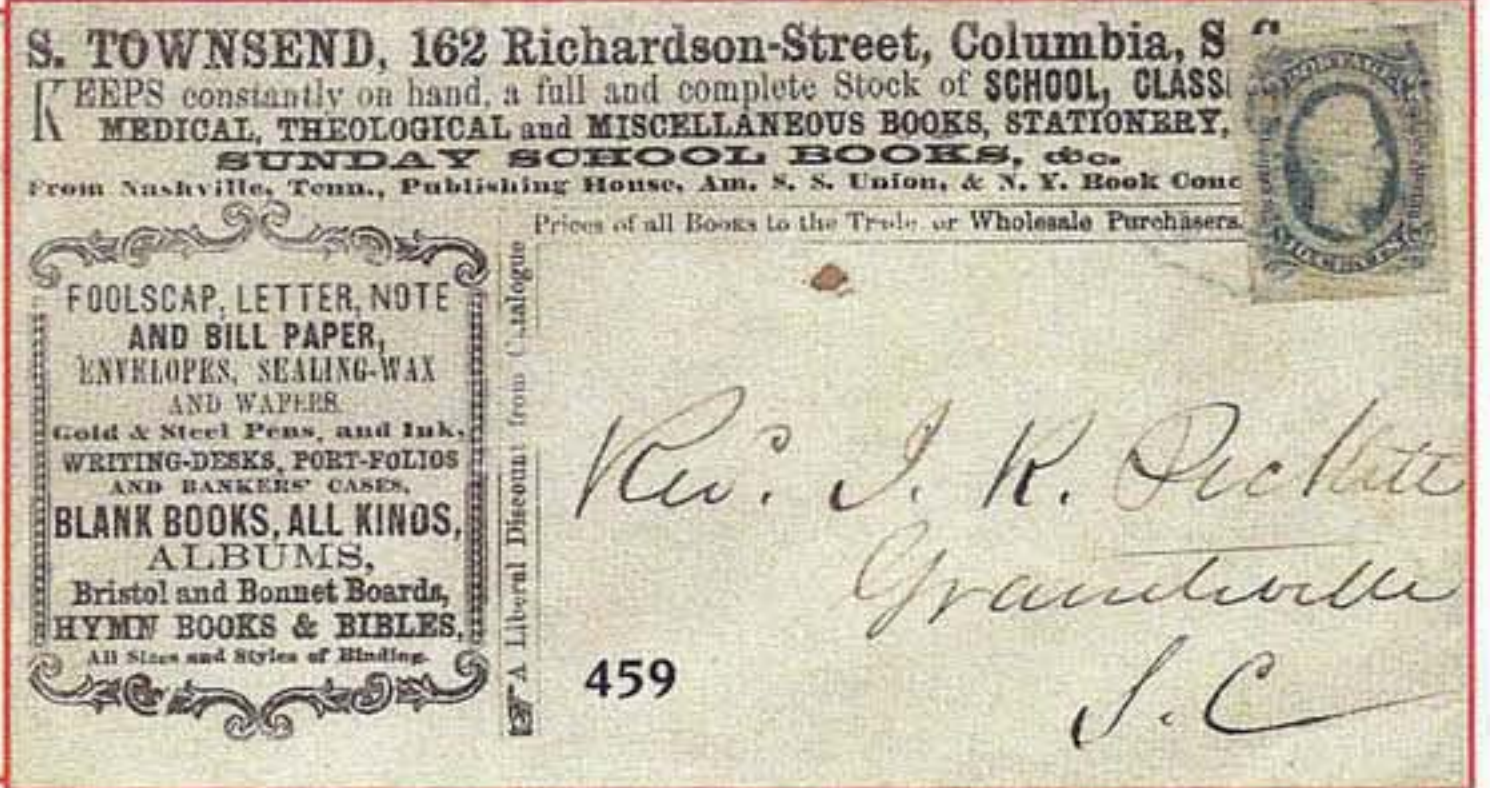 S. TOWNSEND, 162 Richardson-Street, Columbia, S C
KEEPS constantly on hand, a full and complete Stock of SCHOOL, CLASSI
MEDICAL, THEOLOGICAL and MISCELLANEOUS BOOKS, STATIONERY,
SUNDAY SCHOOL BOOKS, &c.
From Nashville, Tenn., Publishing House, Am. S. S. Union, & N. Y. Book Conc
Prices of all Books to the Trade or Wholesale Purchasers.
☞ A Liberal Discount from Catalogue
FOOLSCAP, LETTER, NOTE
AND BILL PAPER,
ENVELOPES, SEALING-WAX
AND WAFERS.
Gold & Steel Pens, and Ink,
WRITING-DESKS, PORT-FOLIOS
AND BANKERS' CASES,
BLANK BOOKS, ALL KINDS,
ALBUMS,
Bristol and Bonnet Boards,
HYMN BOOKS & BIBLES,
All Sizes and Styles of Binding.
POSTAGE
TEN CENTS
Rev. J. R. Pickett
Graniteville
S. C
459